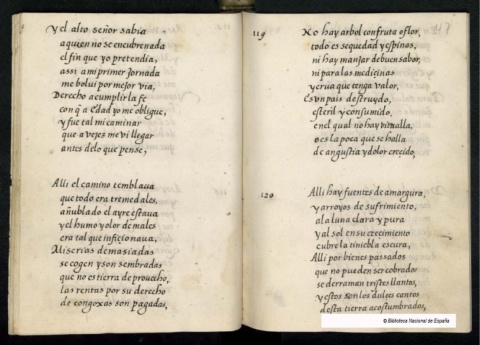 Y el alto señor sabia
a quien no se encubre nada
el fin que yo pretendia,
assi a mi primer jornada
me bolui por mejor via,
Derecho a cumplir la fe
con q̃ a Edad yo me obligue,
y fue tal mi caminar
que a vezes me vi llegar
antes de lo que pense,
Alli el camino temblaua
que todo era tremedales,
añublado el ayre estaua
y el humo y olor de males
era tal que inficionaua,
Miserias demasiadas
se cogen y son sembradas
que no es tierra de prouecho,
las rentas por su derecho
de congoxas son pagadas,
119
No hay arbol con fruta o flor,
todo es sequedad y espinas,
ni hay manjar de buen sabor,
ni para las medicinas
yerua que tenga valor,
Es un pais destruydo,
esteril y consumido,
en el qual no hay vitualla,
o es la poca que se halla
de angustia y dolor crecido,
120
Alli hay fuentes de amargura,
y arroyos de sufrimiento,
a la luna clara y pura
y al sol en su crecimiento
cubre la tiniebla escura,
Alli por bienes passados
que no pueden ser cobrados
se derraman tristes llantos,
y estos son los dulces cantos
desta tierra acostumbrados,
© Biblioteca Nacional de España